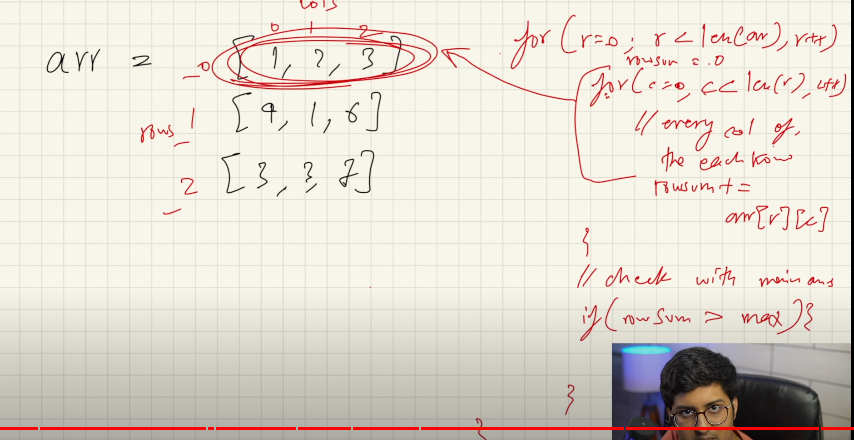 cols
0 1 2
arr = 0 [1, 2, 3]
rows 1 [9, 1, 6]
2 [3, 3, 7]
for (r=0; r < len(arr), r++)
rowsum = 0
for(c=0, c< len(r), c++)
// every col of,
the each row
rowsum+ =
arr[r][c]
}
// check with main ans
if (rowSum > max) {
}
}